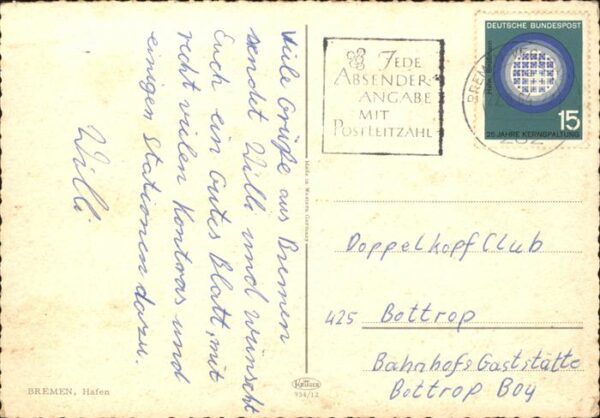 Viele Grüße aus Bremen
sendet Willi und wünscht
Euch ein Gutes Blatt, mit
recht vielen Kontras und
einigen Stationen dazu.
Willi
BREMEN, Hafen
Made in Western Germany
934/12
JEDE
ABSENDER-
ANGABE
MIT
POSTLEITZAHL
DEUTSCHE BUNDESPOST
15
25 JAHRE KERNSPALTUNG
BREM
Doppelkopf Club
425 Bottrop
Bahnhofs Gaststätte
Bottrop Boy